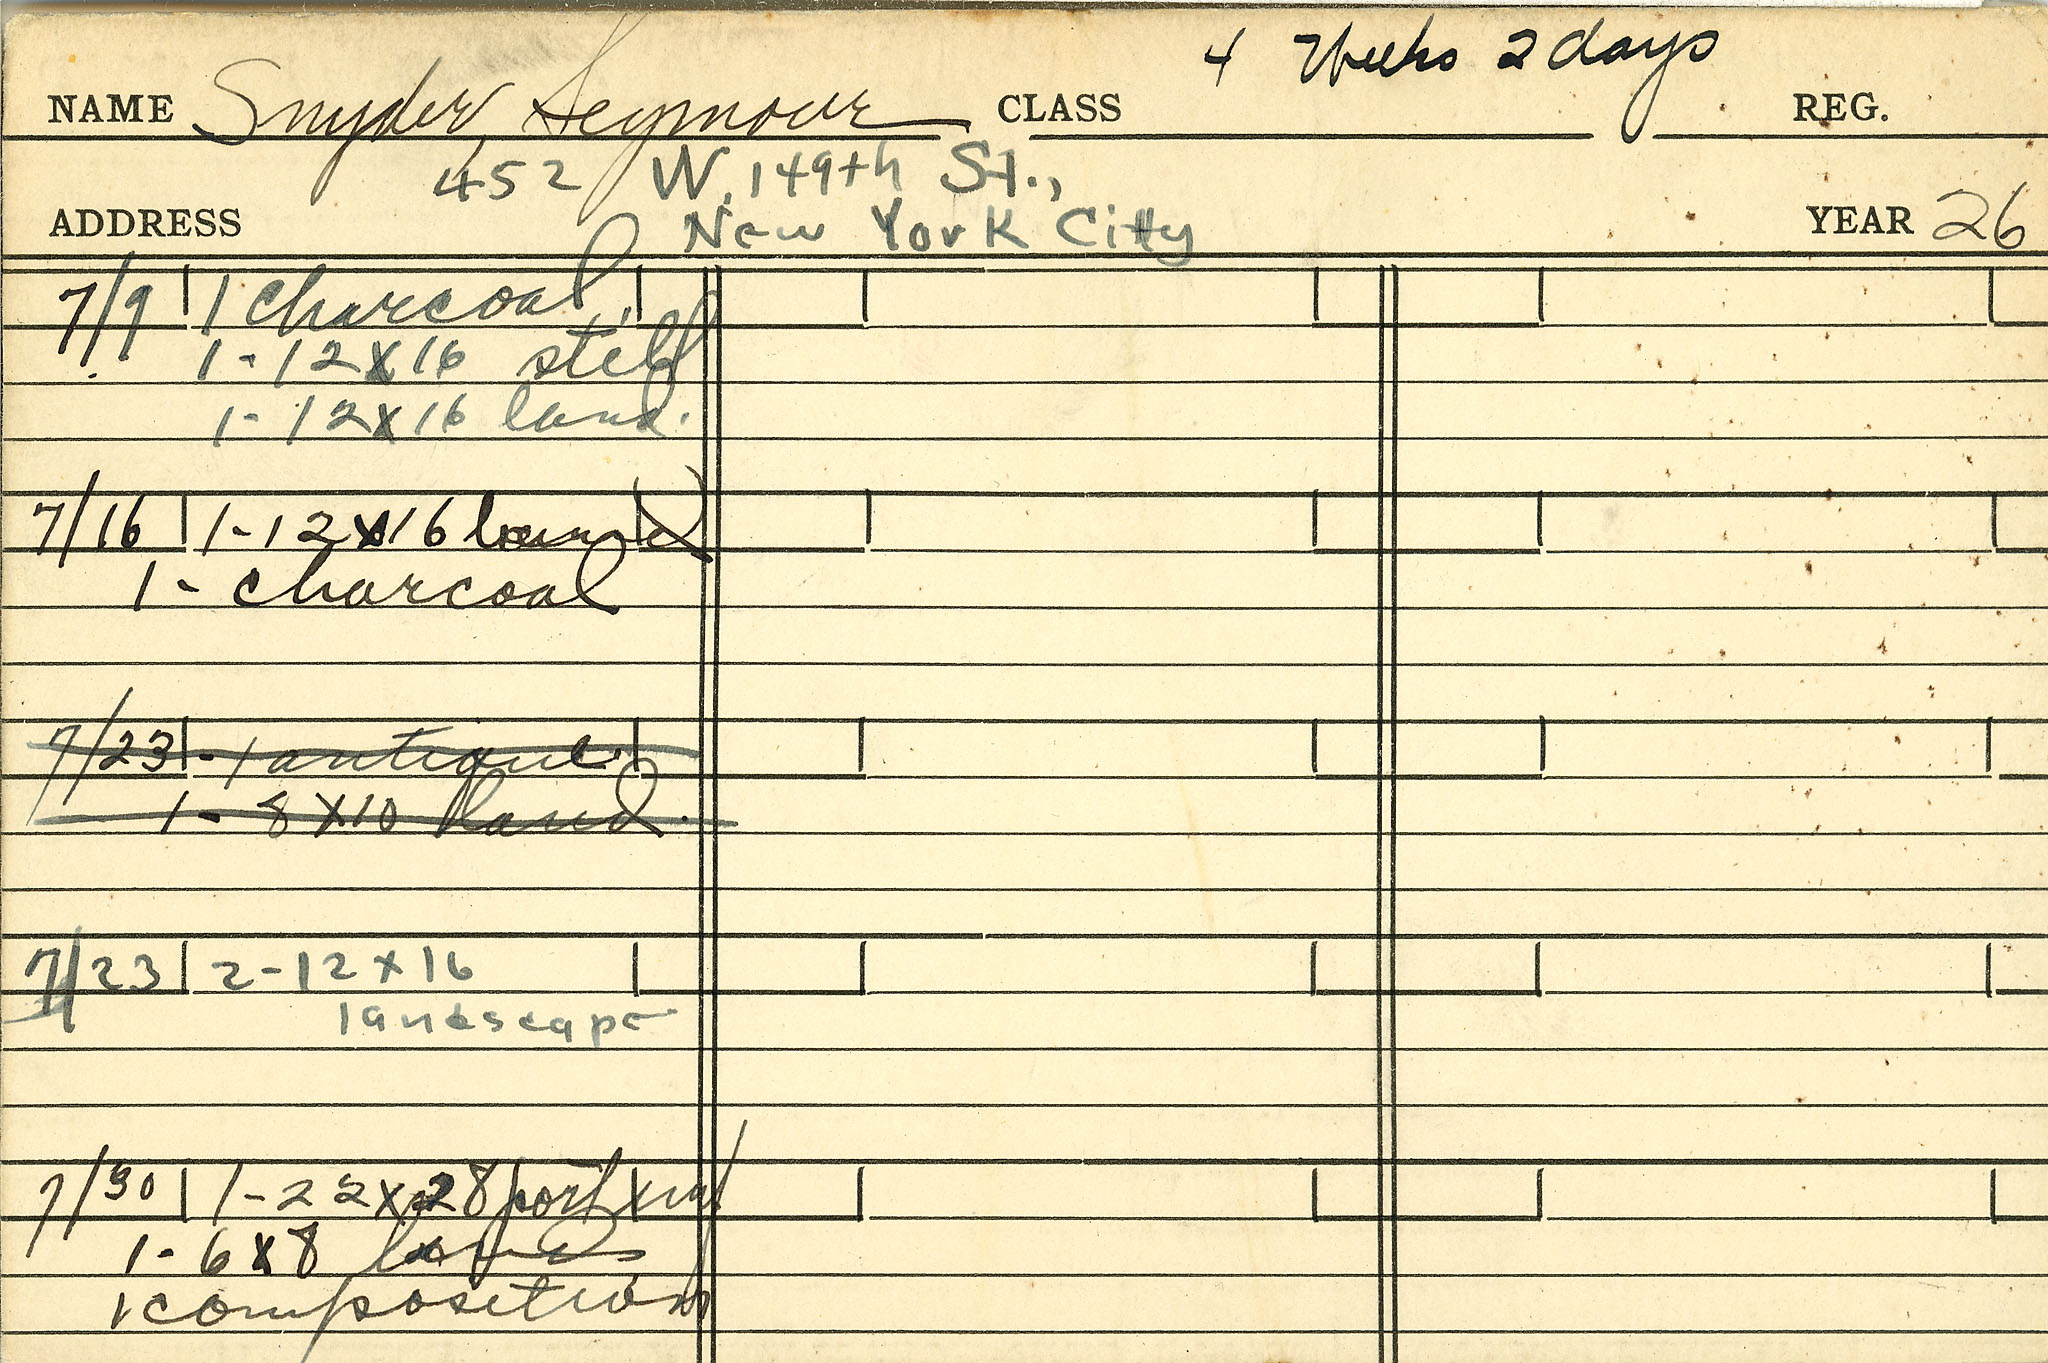 4 Weeks 2 days
NAME Snyder, Seymour CLASS REG.
452 W. 149th St.,
ADDRESS New York City YEAR 26
7/9 1 charcoal
1-12x16 still
1-12x16 land.
7/16 1-12x16 land
1- charcoal
7/23 - 1 antique.
1- 8x10 land.
7/23 2-12x16
landscape
7/30 1-22x28 portrait
1-6x8
1 composition